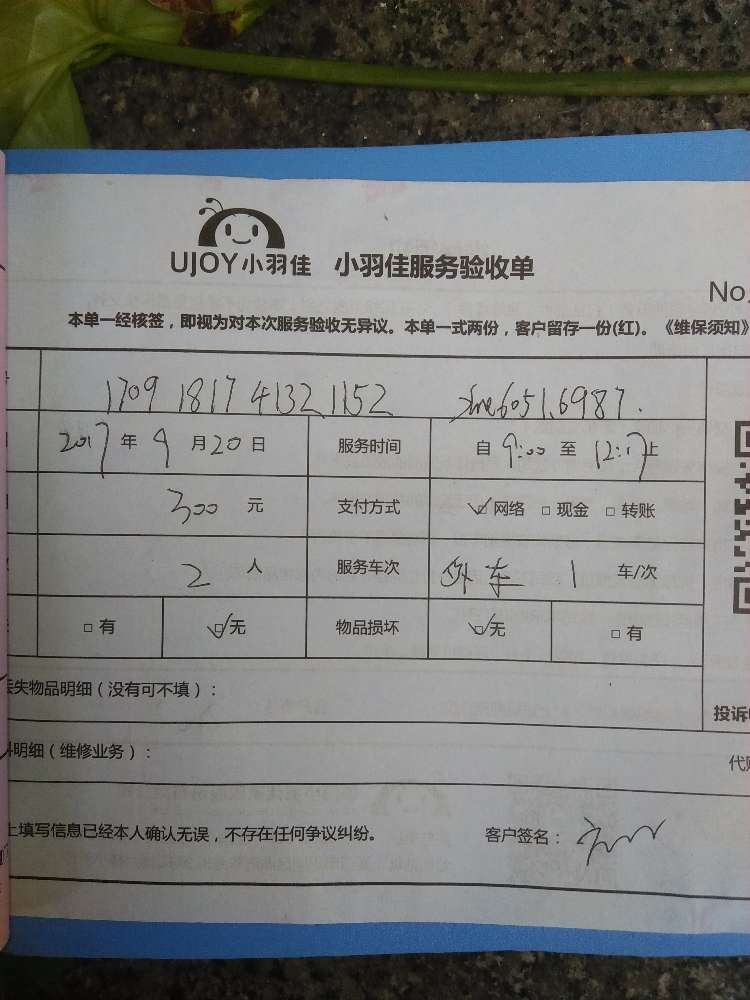 UJOY小羽佳 小羽佳服务验收单
No.
本单一经核签，即视为对本次服务验收无异议。本单一式两份，客户留存一份(红)。《维保须知》
1709 1817 4132 1152 6051.6987.
2017年9月20日 服务时间 自9:00至12:17止
300元 支付方式 ☑网络 □现金 □转账
2人 服务车次 外车 1 车/次
□有 ☑无 物品损坏 ☑无 □有
丢失物品明细（没有可不填）：
投诉
料明细（维修业务）：
上填写信息已经本人确认无误，不存在任何争议纠纷。 客户签名：